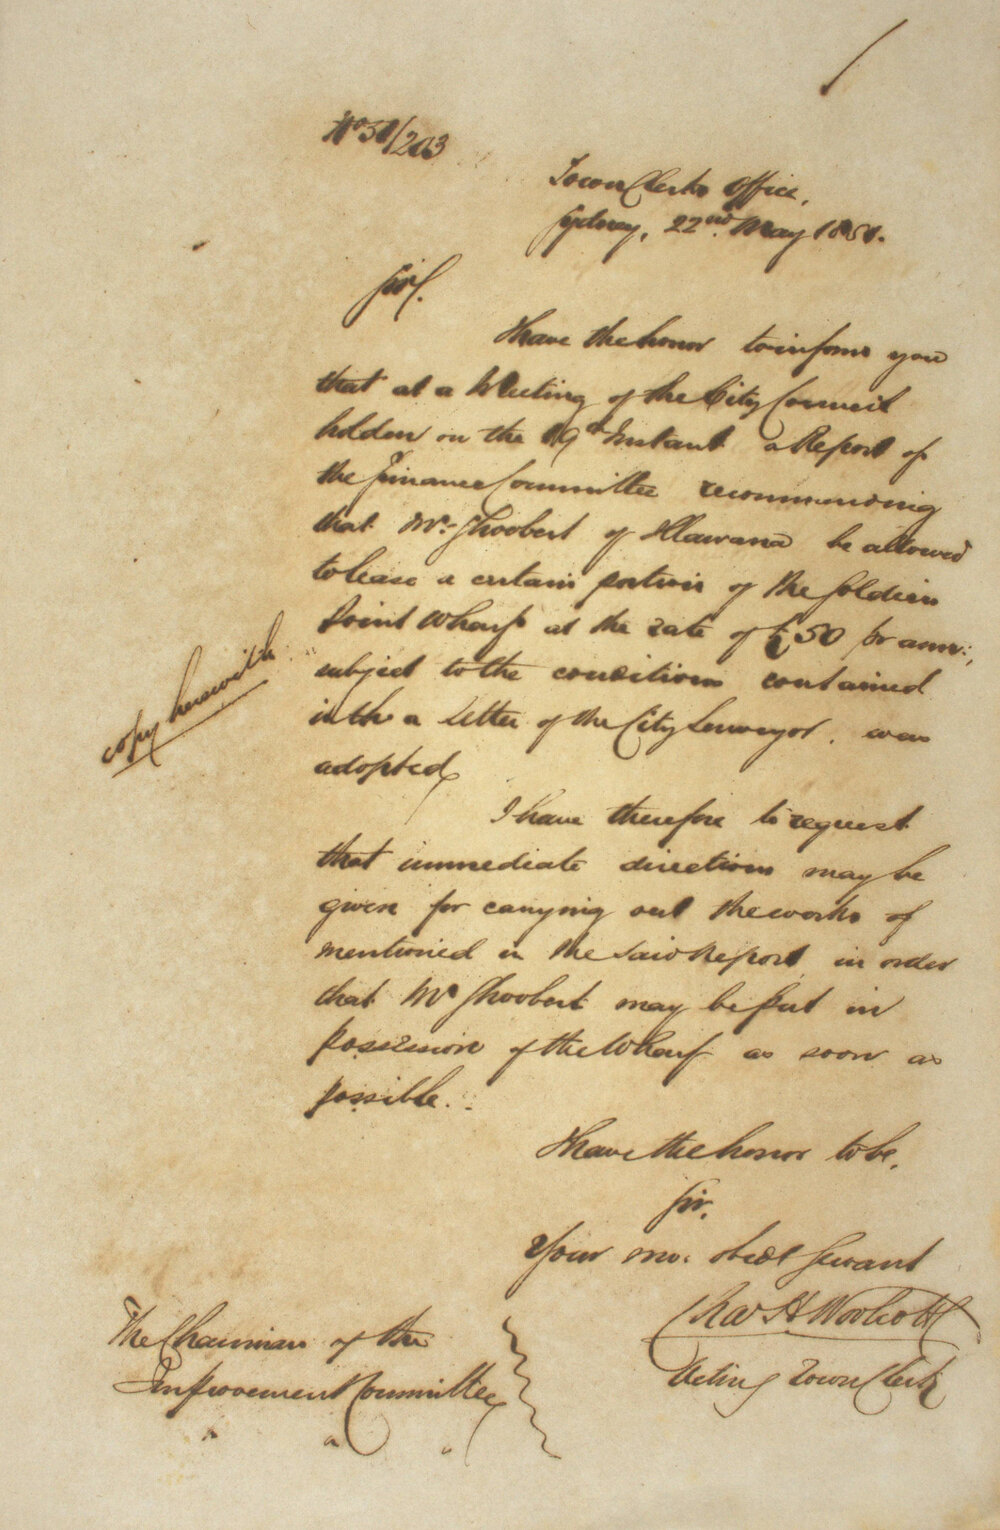 No 51/203
Town Clerks Office,
Sydney, 22nd May 1851.
Sir,
I have the honor to inform you
that at a Meeting of the City Council
holden on the 19th Instant a Report of
the Finance Committee recommending
that Mr. Shoobert of Illawarra be allowed
to lease a certain portion of the Soldiers
Point Wharf at the rate of £50 pr ann:,
subject to the conditions contained
in the a letter of the City Surveyor, was
adopted
copy herewith
I have therefore to request
that immediate directions may be
given for carrying out the works of
mentioned in the said Report in order
that Mr Shoobert may be put in
possession of the Wharf as soon as
possible.
I have the honor to be,
Sir,
Your mo. obedt Servant
Chas H Woolcott
Acting Town Clerk
The Chairman of the
Improvement Committee
" " "